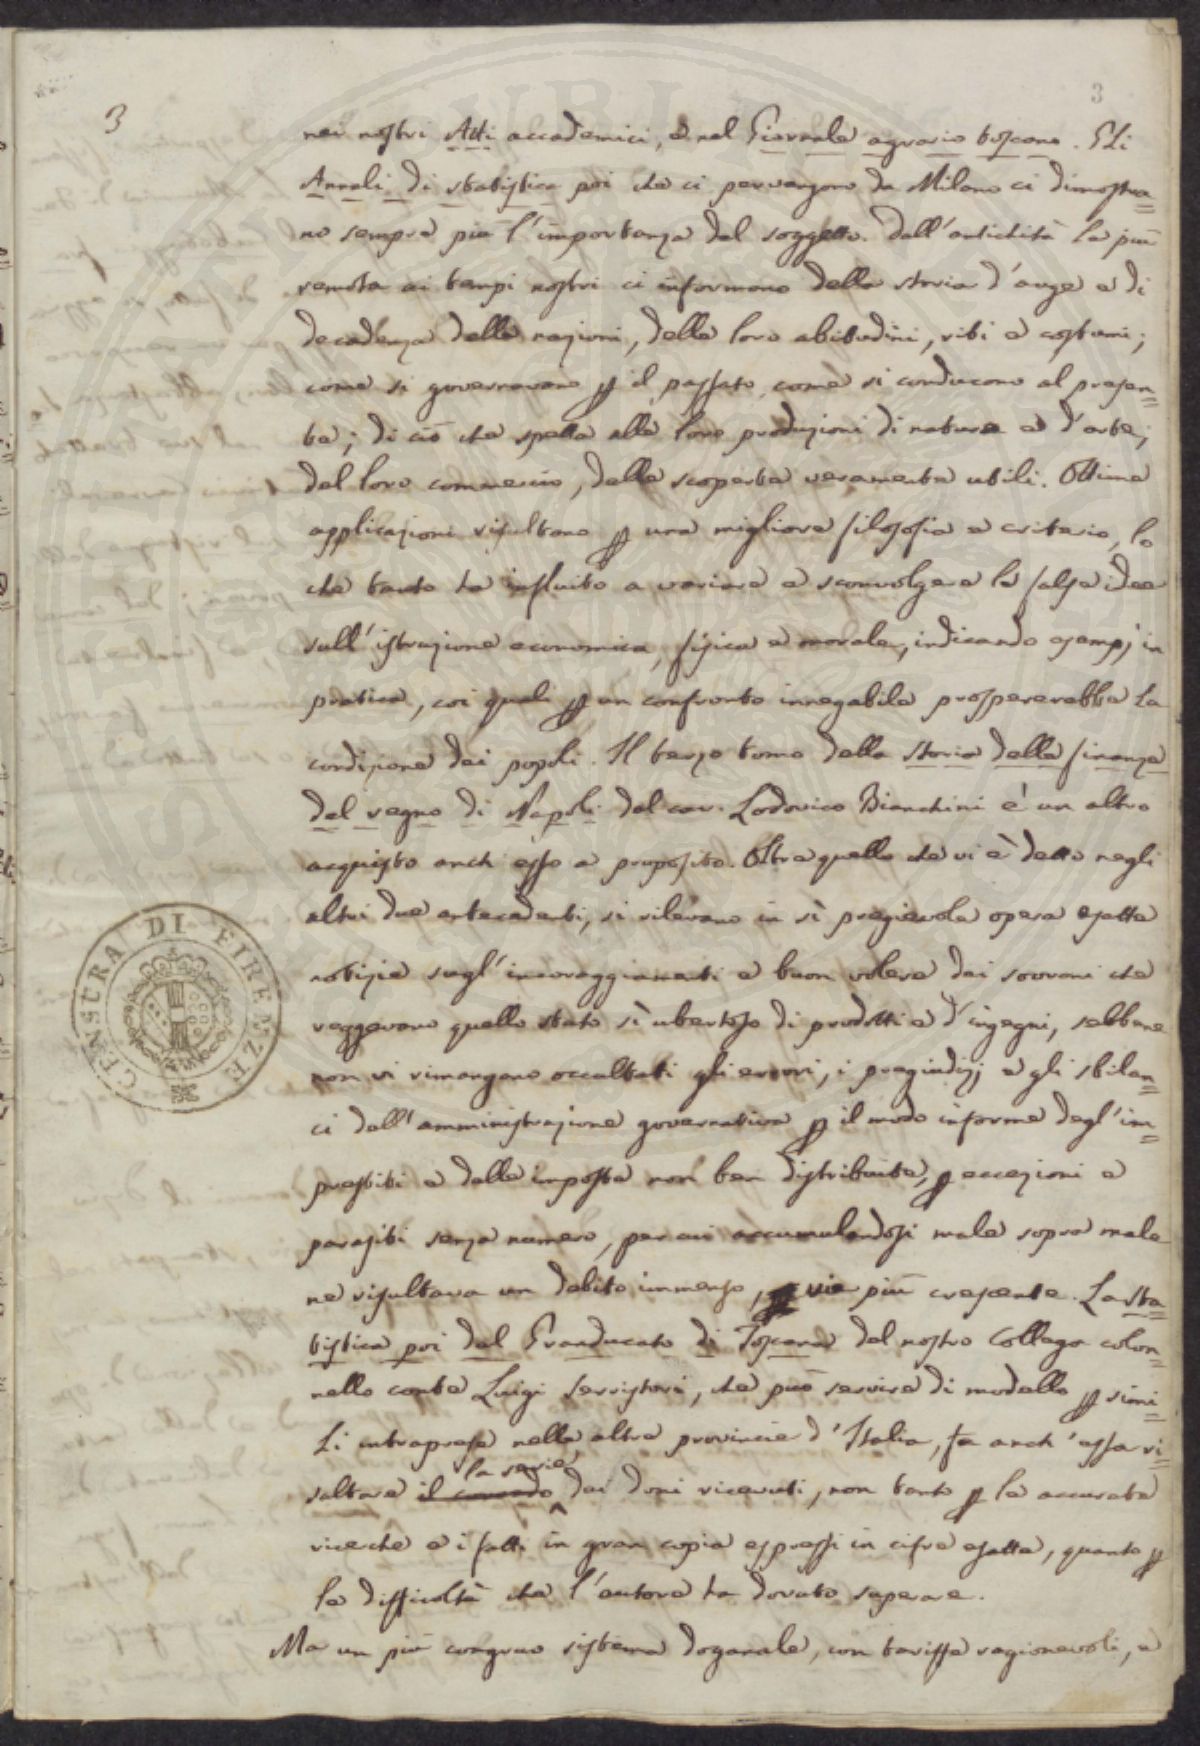 3
3
nei nostri Atti accademici, e nel Giornale agrario toscano. Gli
Annali di statistica poi che ci pervengono da Milano ci dimostra=
no sempre più l'importanza del soggetto. Dall'antichità la più
remota ai tempi nostri ci informano della storia d'auge e di
decadenza delle nazioni, delle loro abitudini, riti e costumi;
come si governavano p il passato, come si conducono al presen=
te; di ciò che spetta alle loro produzioni di natura e d'arte;
del loro commercio, delle scoperte veramente utili. Ottime
applicazioni risultano p una migliore filosofia e criterio, lo
che tanto ha influito a variare e sconvolgere le false idee
sull'istruzione economica, fisica e morale, indicando esempj in
pratica, coi quali p un confronto innegabile prospererebbe la
condizione dei popoli. Il terzo tomo della storia delle finanze
del regno di Napoli del cav. Lodovico Bianchini è un altro
acquisto anch'esso a proposito. Oltre quello che vi è detto negli
altri due antecedenti, si rilevano in sì pregievole opera esatte
notizie sugl'incoraggiamenti e buon volere dei sovrani che
reggevano quello stato sì ubertoso di prodotti e d'ingegni, sebbene
non vi rimangano occultati gli errori, i pregiudizj e gli sbilan=
ci dell'amministrazione governativa p il modo informe degl'im=
prestiti e delle imposte non ben distribuite, p eccezioni e
parasiti senza numero, per cui accumulandosi male sopra male
ne risultava un debito immenso, vie più crescente. La sta=
tistica poi del Granducato di Toscana del nostro Collega colon=
nello conte Luigi Serristori, che può servire di modello p simi=
li intraprese nelle altre provincie d'Italia, fa anch'essa ri=
la serie
saltare il dei doni ricevuti, non tanto p le accurate
ricerche e i fatti in gran copia espressi in cifre esatte, quanto p
le difficoltà che l'autore ha dovuto superare.
Ma un più congruo sistema doganale, con tariffe ragionevoli, e
CENSURA DI FIRENZE